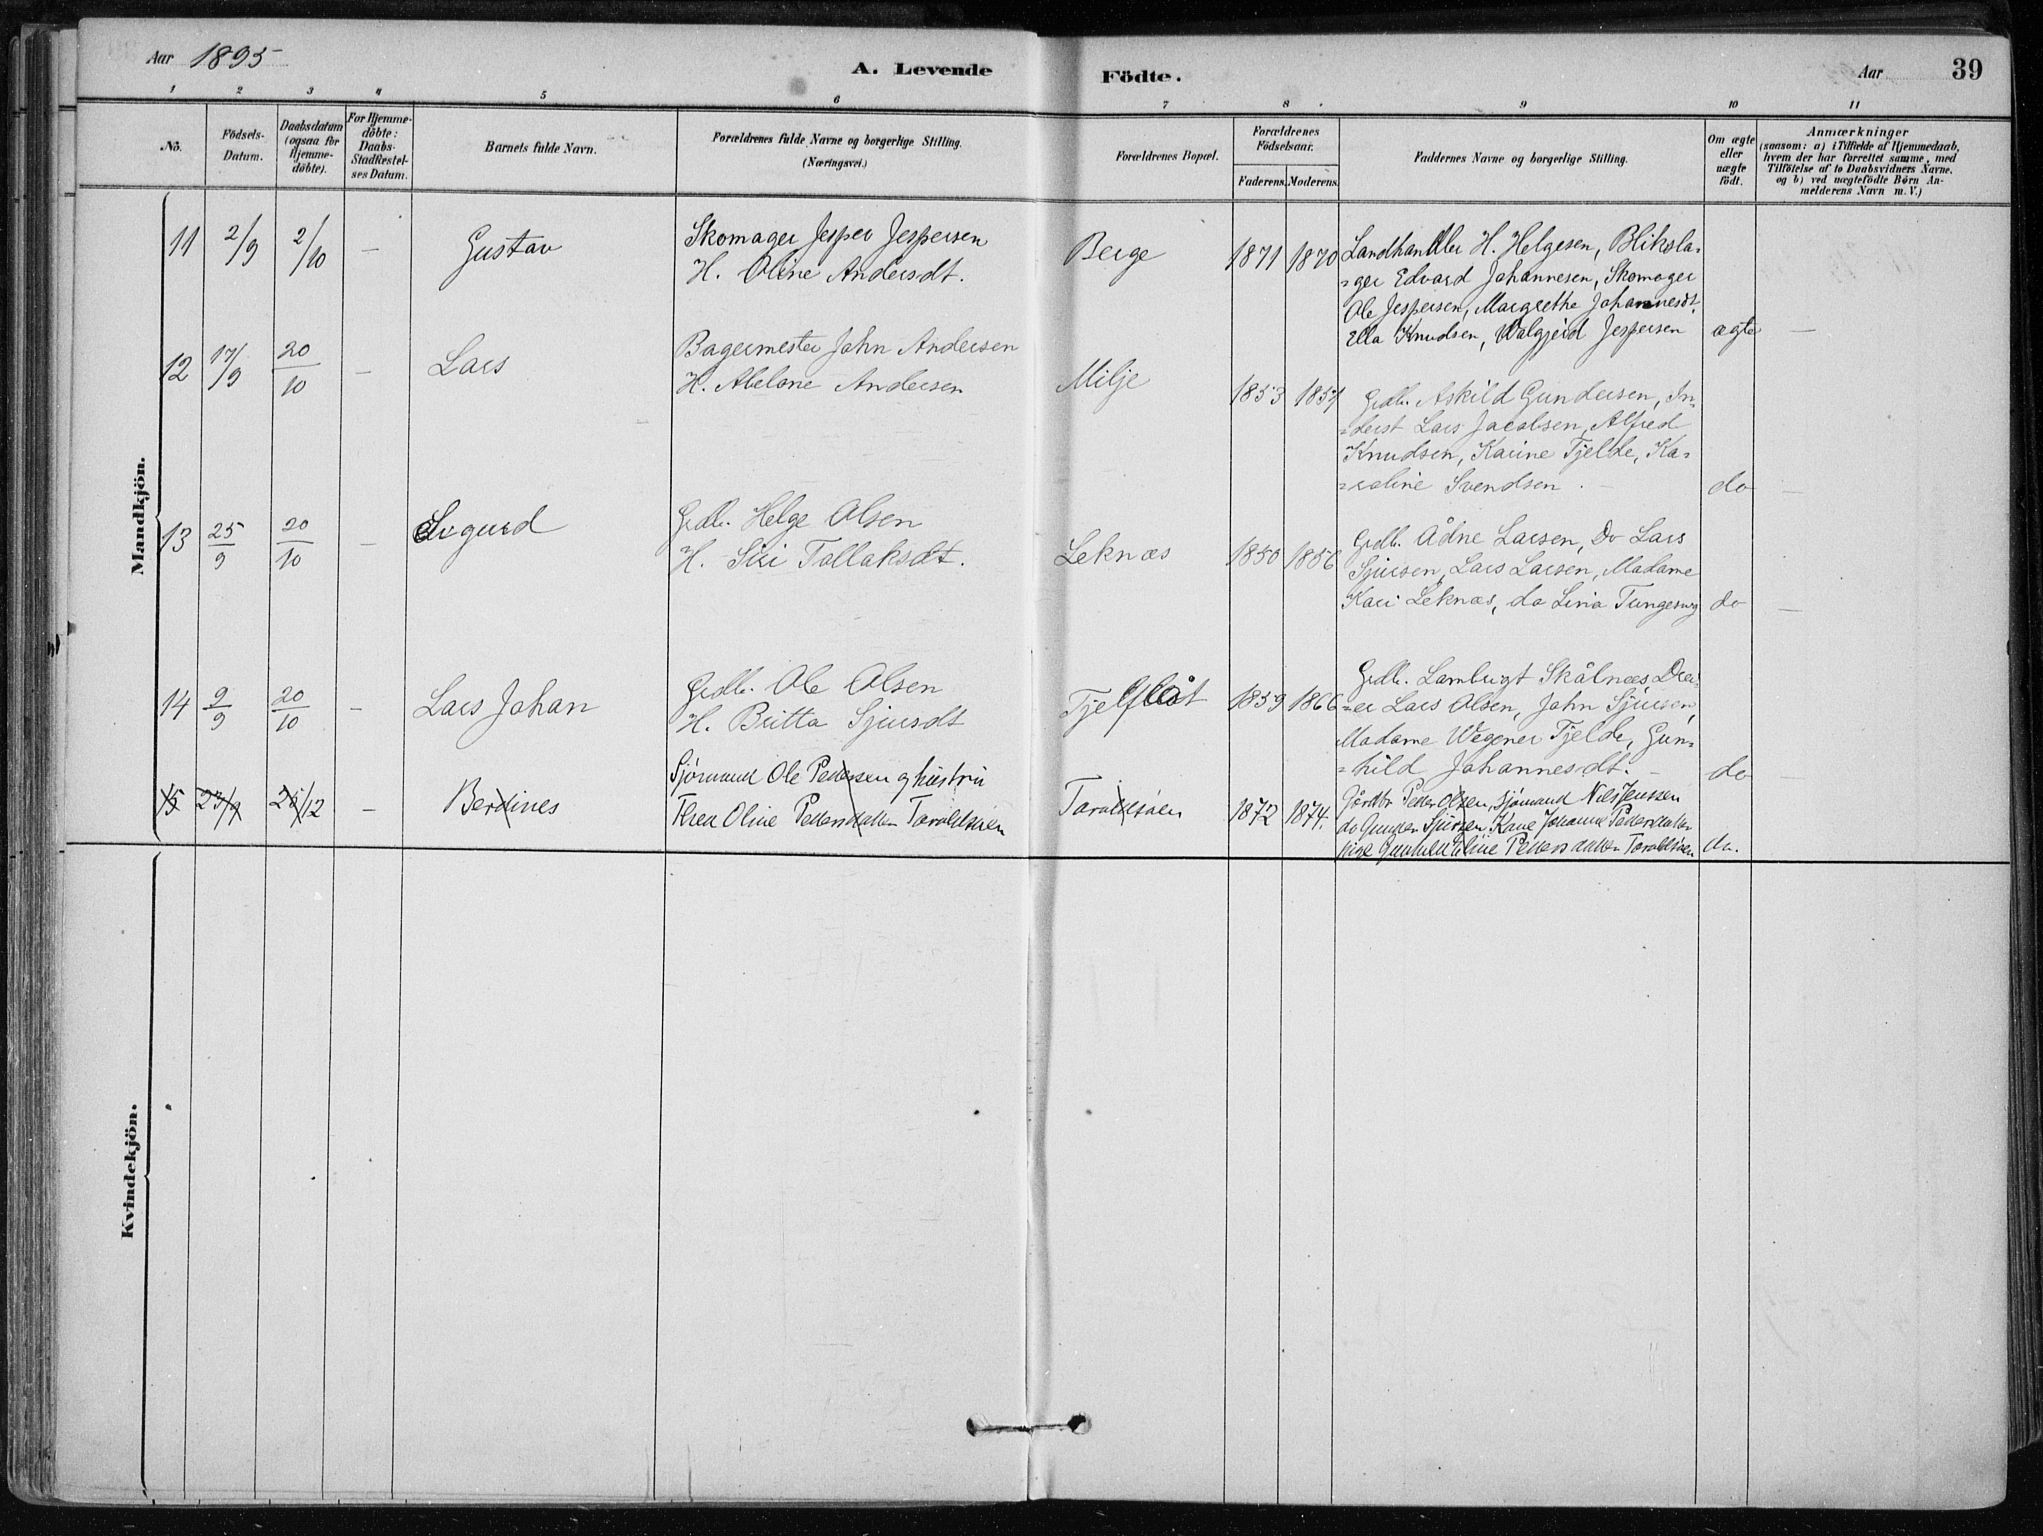 Aar 1895
A. Levende Födte.
Aar
39
1 2 3 4 5 6 7 8 9 10 11
No.
Födsels-Datum.
Daabsdatum (ogsaa for Hjemme-döbte).
For Hjemme-döbte: Daabs-Stadfæstel-ses Datum.
Barnets fulde Navn.
Forældrenes fulde Navne og borgerlige Stilling.
(Næringsvei.)
Forældrenes Bopæl.
Forældrenes Födselsaar.
Faderens. Moderens.
Faddernes Navne og borgerlige Stilling.
Om ægte eller uægte födt.
Anmærkninger
(saasom: a) i Tilfælde af Hjemmedaab,
hvem der har forrettet samme, med
Tilföielse af to Daabsvidners Navne.
og b) ved uægtefödte Börn An-
melderens Navn m. V.)
Mandkjön.
11 2/9 2/10 — Gustav
Skomager Jesper Jespersen
H. Oline Andersdt.
Berge 1871 1870
Landhandler H. Helgesen, Bliksla-
-ger Edvard Johannesen, Skomager
Ole Jespersen, Margrethe Johannesdt,
Ella Knudsen, Walgjerd Jespersen
ægte —
12 17/9 20/10 — Lars
Bagermester John Andersen
H. Abelone Andersen
Milje 1853 1857
Grdb. Askild Gundersen, In-
-derst Lars Jacobsen, Alfred
Knudsen, Karine Tjelde, Ka-
-roline Svendsen. —
do —
13 25/9 20/10 — Sigurd
Grdb. Helge Olsen
H. Siri Tollaksdt.
Leknæs 1850 1856
Grdb. Ådne Larsen, Do Lars
Sjursen, Lars Larsen, Madame
Kari Leknæs, do Lina Tungesvig
do —
14 9/9 20/10 — Lars Johan
Grdb. Ole Olsen
H. Britta Sjursdt
Tjelflåt 1859 1866
Grdb. Lambrigt Skålnæs Dre-
-er Lars Olsen, John Sjursen,
Madame Wegener Tjelde, Gun-
-hild Johannesdt. —
do —
15 23/9 25/12 — Berdines
Sjømand Ole Pedersen og hustru
Thea Oline Pedersdatter Taraldsøen
Taraldsøen 1872 1874.
Gårdbr Petter Olsen, Sjømand Nils Jenssen
do Gunder Sjursen, Kone Johanne Pedersdatter
pige Gunhild Oline Pedersdatter Taraldsøen
do.
Kvindekjön.